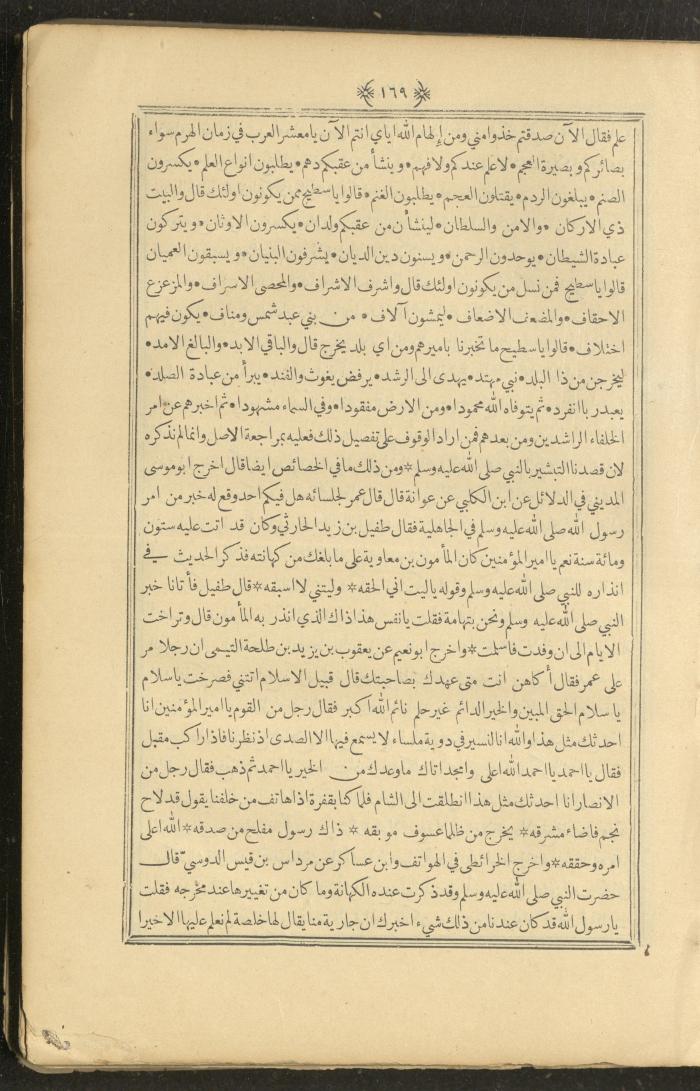 ١٦٩
علم فقال الآن صدقتم خذوا مني ومن إلهام الله اياي انتم الآن يا معشر العرب في زمان الهرم سواء
بصائركم وبصيرة العجم * لا علم عندكم ولا فهم * وينشأ من عقبكم دهم * يطلبون انواع العلم * يكسرون
الصنم * يبلغون الردم * يقتلون العجم * يطلبون الغنم * قالوا يا سطيح ممن يكونون اولئك قال والبيت
ذي الاركان * والامن والسلطان * لينشأن من عقبكم ولدان * يكسرون الاوثان * ويتركون
عبادة الشيطان * يوحدون الرحمن * ويسنون دين الديان * يشرفون البنيان * ويسبقون العميان
قالوا يا سطيح فمن نسل من يكونون اولئك قال واشرف الاشراف * والمحصى الاسراف * والمزعزع
الاحقاف * والمضعف الاضعاف * ليمشون آلاف * من بني عبد شمس ومناف * يكون فيهم
اختلاف * قالوا يا سطيح ما تخبرنا بامرهم ومن اي بلد يخرج قال والباقي الابد * والبالغ الامد *
ليخرجن من ذا البلد * نبي مهتد * يهدى الى الرشد * يرفض يغوث والفند * يبرأ من عبادة الصلد *
يعبد ربا انفرد * ثم يتوفاه الله محمودا * ومن الارض مفقودا * وفي السماء مشهودا * ثم اخبرهم عن امر
الخلفاء الراشدين ومن بعدهم فمن اراد الوقوف على تفصيل ذلك فعليه بمراجعة الاصل وانما لم نذكره
لان قصدنا التبشير بالنبي صلى الله عليه وسلم * ومن ذلك ما في الخصائص ايضا قال اخرج ابو موسى
المديني في الدلائل عن ابن الكلبي عن عوانة قال قال عمر لجلسائه هل فيكم احد وقع له خبر من امر
رسول الله صلى الله عليه وسلم في الجاهلية فقال طفيل بن زيد الحارثي وكان قد اتت عليه ستون
ومائة سنة نعم يا امير المؤمنين كان المأمون بن معاوية على ما بلغك من كهانته فذكر الحديث في
انذاره للنبي صلى الله عليه وسلم وقوله يا ليت اني الحقه * وليتني لا اسبقه * قال طفيل فأتانا خبر
النبي صلى الله عليه وسلم ونحن بتهامة فقلت يا نفس هذا ذاك الذي انذر به المأمون قال وتراخت
الايام الى ان وفدت فاسلمت * واخرج ابو نعيم عن يعقوب بن يزيد بن طلحة التيمى ان رجلا مر
على عمر فقال أكاهن انت متى عهدك بصاحبتك قال قبيل الاسلام اتتني فصرخت يا سلام
يا سلام الحق المبين والخير الدائم غير حلم نائم الله اكبر فقال رجل من القوم يا امير المؤمنين انا
احدثك مثل هذا والله انا لنسير في دوية ملساء لا يسمع فيها الا الصدى اذ نظرنا فاذا راكب مقبل
فقال يا احمد يا احمد الله اعلى وامجد اتاك ما وعدك من الخير يا احمد ثم ذهب فقال رجل من
الانصار انا احدثك مثل هذا انطلقت الى الشام فلما كنا بقفرة اذا هاتف من خلفنا يقول قد لاح
نجم فاضاء مشرقه * يخرج من ظلما عسوف موبقه * ذاك رسول مفلح من صدقه * الله اعلى
امره وحققه * واخرج الخرائطى في الهواتف وابن عساكر عن مرداس بن قيس الدوسيّ قال
حضرت النبي صلى الله عليه وسلم وقد ذكرت عنده الكهانة وما كان من تغييرها عند مخرجه فقلت
يا رسول الله قد كان عندنا من ذلك شيء اخبرك ان جارية منا يقال لها خلصة لم نعلم عليها الا خيرا